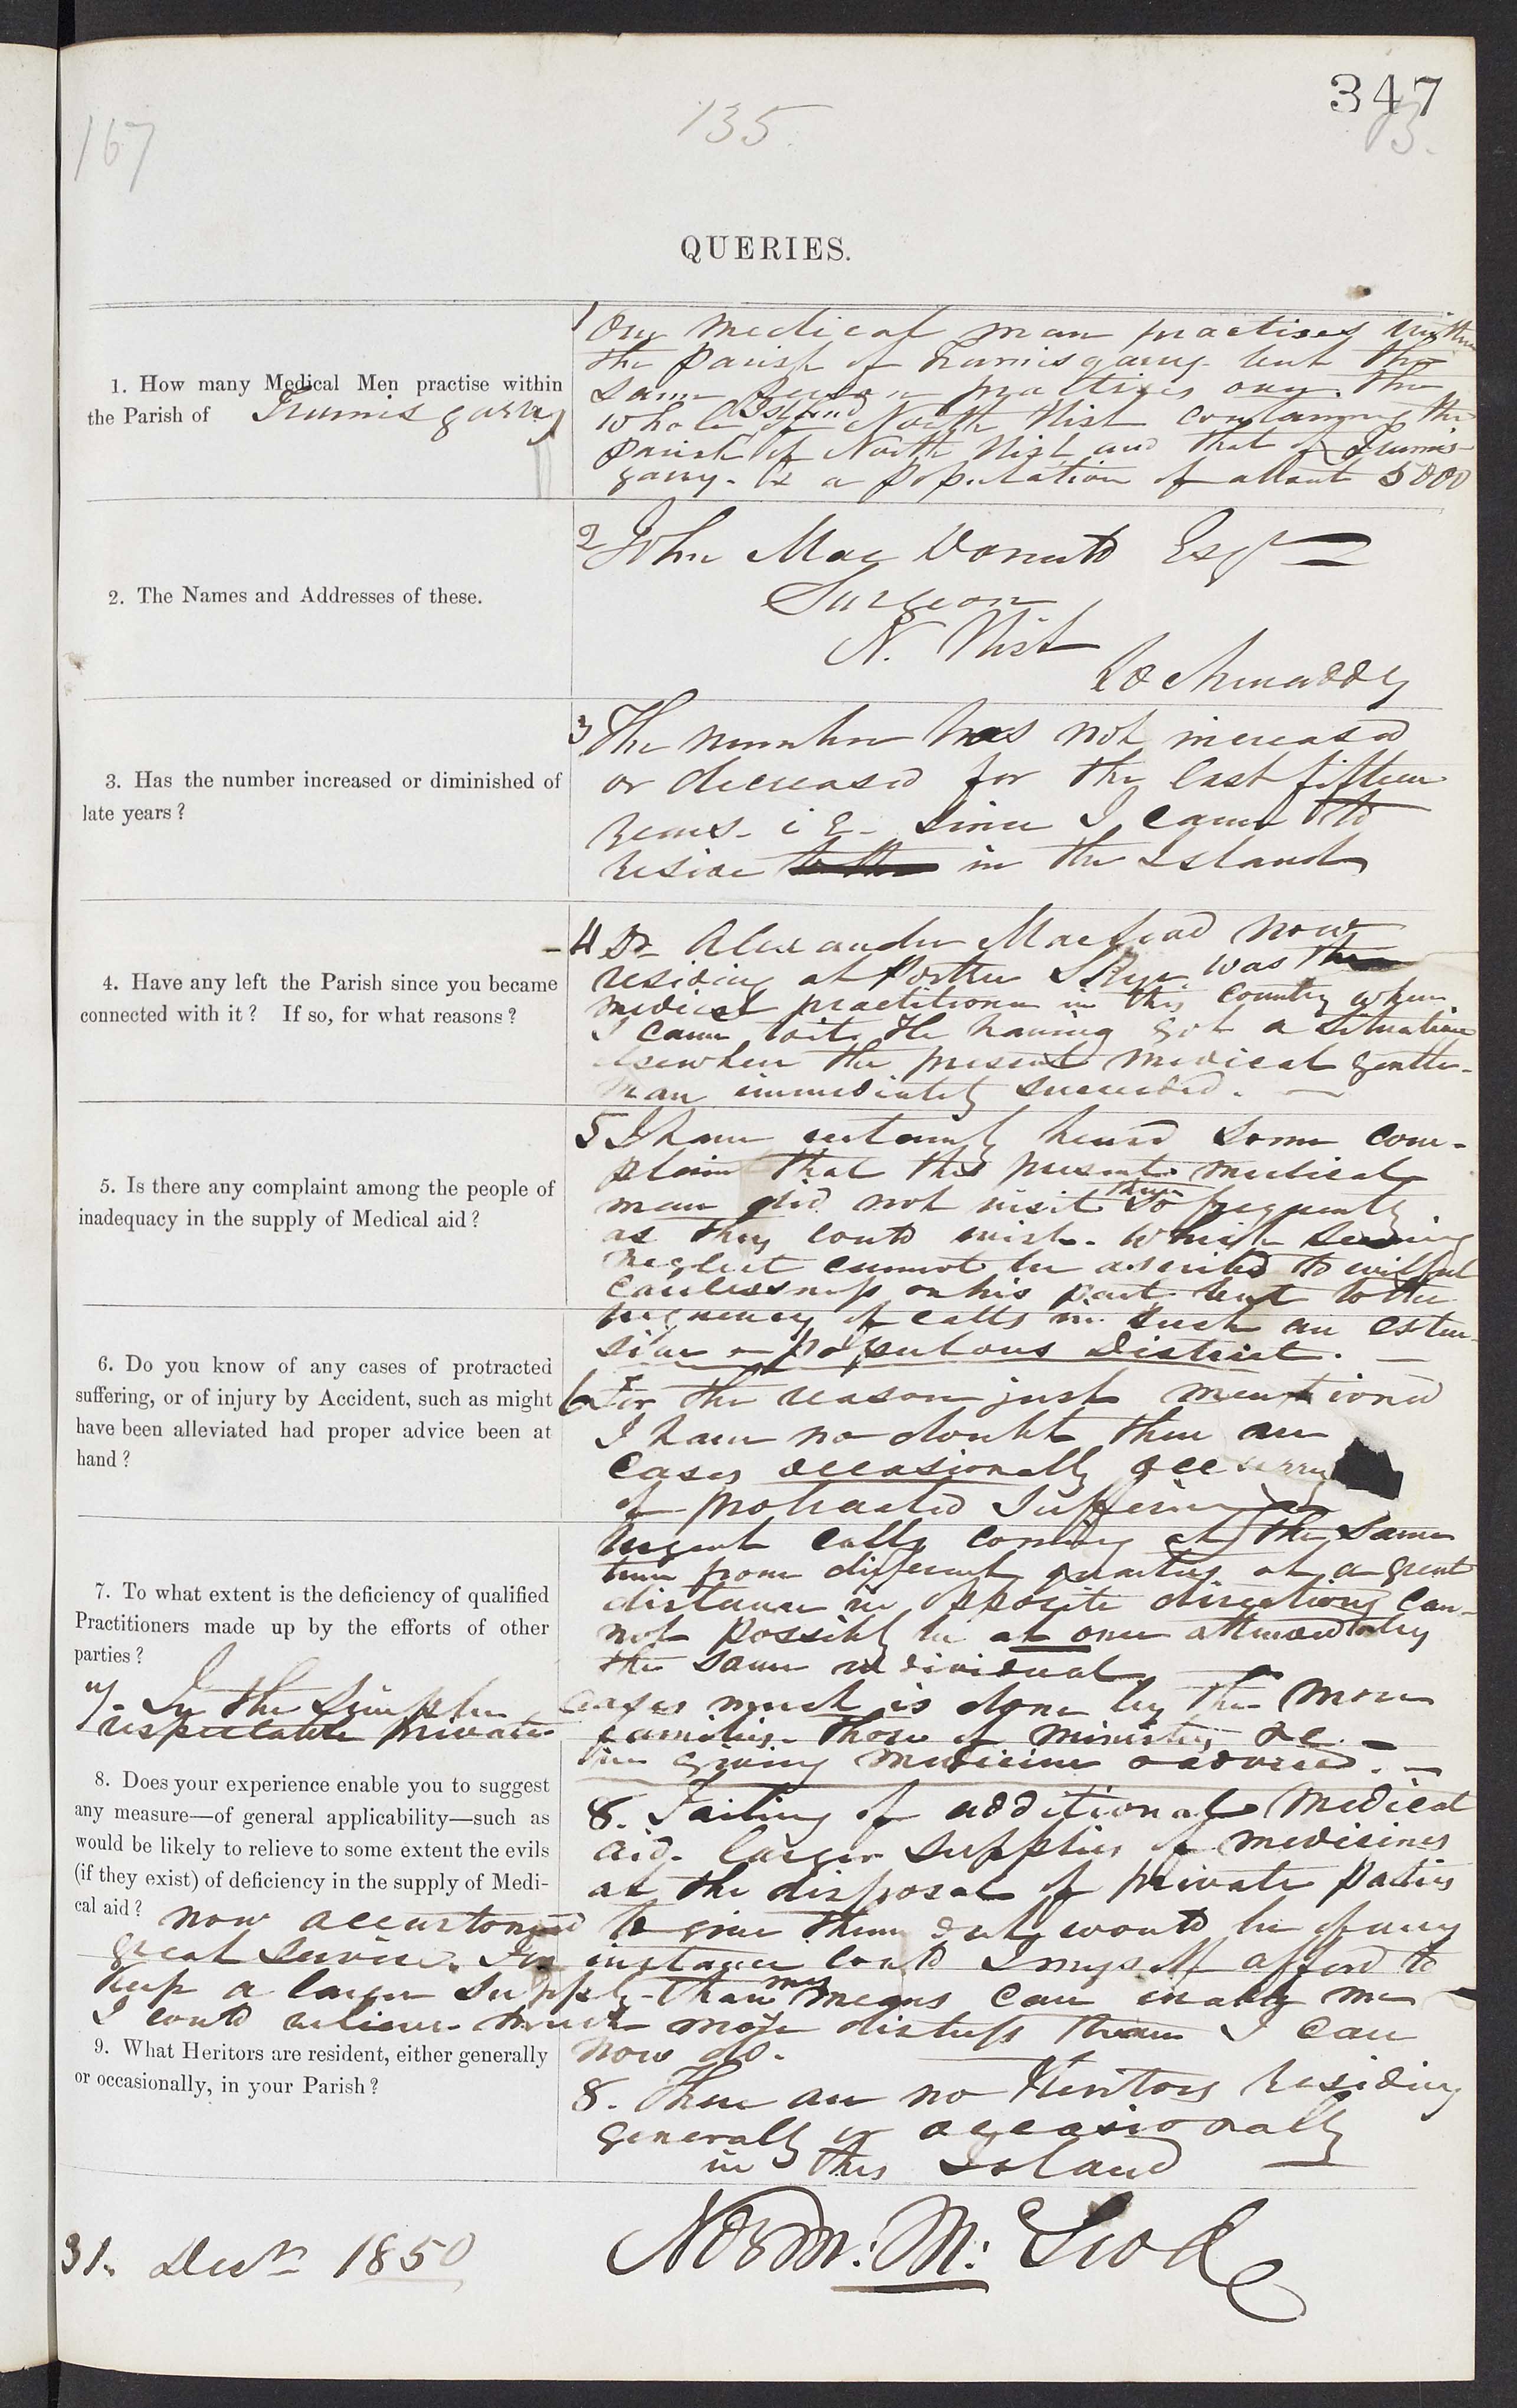 347
167
135.
3.
QUERIES.
1. How many Medical Men practise within
the Parish of Trumisgarry
1 One medical man practises within
the Parish of Trumisgarry but the
same person practises over the
whole Island of North Uist containing the
Parish of North Uist and that of Trumis-
garry. & a population of about 5000
2. The Names and Addresses of these.
2 John Mac Donald Esqr
Surgeon
N. Uist
Lochmaddy
3. Has the number increased or diminished of
late years?
3 The number has not increased
or decreased for the last fifteen
years - i e - since I came to
reside in the Island
4. Have any left the Parish since you became
connected with it? If so, for what reasons?
4 Dr Alexander MacLeod now
residing at Portree Skye was the
medical practitioner in this country when
I came to it. He having got a situation
elsewhere the present medical gentle-
man immediately succeeded.
5. Is there any complaint among the people of
inadequacy in the supply of Medical aid?
5 I have certainly heard some com-
plaint that the present medical
man did not visit them so frequently
as they could wish. Which seeming
neglect cannot be ascribed to wilful
carelessness on his part but to the
frequency of calls in such an exten-
sive & populous District.
6. Do you know of any cases of protracted
suffering, or of injury by Accident, such as might
have been alleviated had proper advice been at
hand?
6 For the reason just mentioned
I have no doubt there are
cases occasionally occurring
of protracted suffering as
urgent calls coming at the same
time from different quarters at a great
distance in opposite directions can-
not possibly be at once attended to by
the same individual
7. To what extent is the deficiency of qualified
Practitioners made up by the efforts of other
parties?
7. In the simpler cases much is done by the more
respectable private families. Those of ministers &c
in giving medicine & advice.
8. Does your experience enable you to suggest
any measure—of general applicability—such as
would be likely to relieve to some extent the evils
(if they exist) of deficiency in the supply of Medi-
cal aid?
8. Failing of additional Medical
aid. larger supplies of medicines
at the disposal of private parties
now accustomed to give them out would be of very
great service. For instance could I myself afford to
keep a larger supply than my means can enable me
I could relieve much more distress than I can
now do.
9. What Heritors are resident, either generally
or occasionally, in your Parish?
8. There are no Heritors residing
generally or occasionally
in this Island
31. Decr 1850
Norm: McLeod